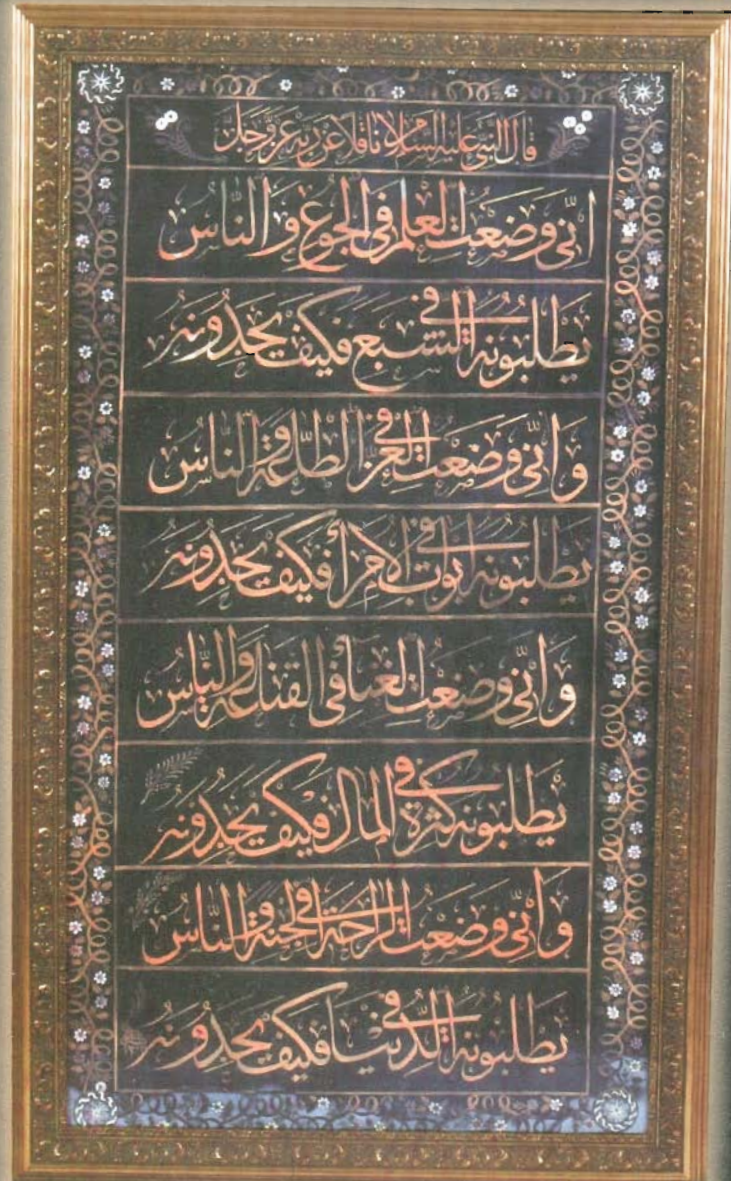 قال النبي عليه السلام ناقلا عن ربه عز وجل
انّي وضعت العلم في الجوع والناس
يطلبونه في الشبع فكيف يجدونه
وانّي وضعت العز في الظلمة والناس
يطلبونه في ابوب الامرأ فكيف يجدونه
وانّي وضعت الغنأ في القناعة والناس
يطلبونه في كثرة المال فكيف يجدونه
وانّي وضعت الراحة في الجنة والناس
يطلبونه في الدنيا فكيف يجدونه